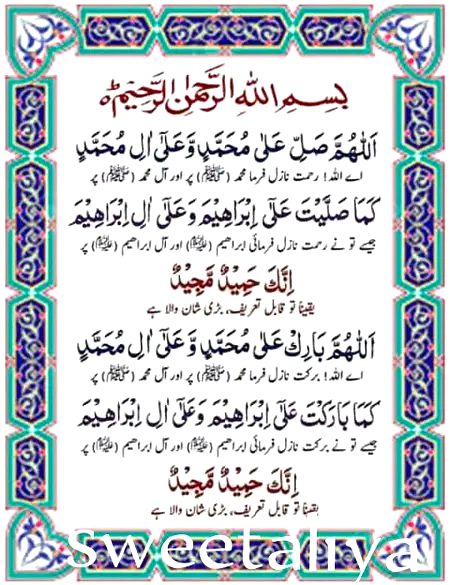 بِسْمِ اللهِ الرَّحْمٰنِ الرَّحِيْمِ
اَللّٰهُمَّ صَلِّ عَلٰى مُحَمَّدٍ وَّعَلٰٓى اٰلِ مُحَمَّدٍ
اے اللہ! رحمت نازل فرما محمد (ﷺ) پر اور آل محمد (ﷺ) پر
كَمَا صَلَّيْتَ عَلٰٓى اِبْرَاهِيْمَ وَعَلٰٓى اٰلِ اِبْرَاهِيْمَ
جیسے تو نے رحمت نازل فرمائی ابراہیم (ﷺ) پر اور آل ابراہیم (ﷺ) پر
اِنَّكَ حَمِيْدٌ مَّجِيْدٌ
یقیناً تو قابل تعریف، بڑی شان والا ہے
اَللّٰهُمَّ بَارِكْ عَلٰى مُحَمَّدٍ وَّعَلٰٓى اٰلِ مُحَمَّدٍ
اے اللہ! برکت نازل فرما محمد (ﷺ) پر اور آل محمد (ﷺ) پر
كَمَا بَارَكْتَ عَلٰٓى اِبْرَاهِيْمَ وَعَلٰٓى اٰلِ اِبْرَاهِيْمَ
جیسے تو نے برکت نازل فرمائی ابراہیم (ﷺ) پر اور آل ابراہیم (ﷺ) پر
اِنَّكَ حَمِيْدٌ مَّجِيْدٌ
یقیناً تو قابل تعریف، بڑی شان والا ہے
Sweetaliya